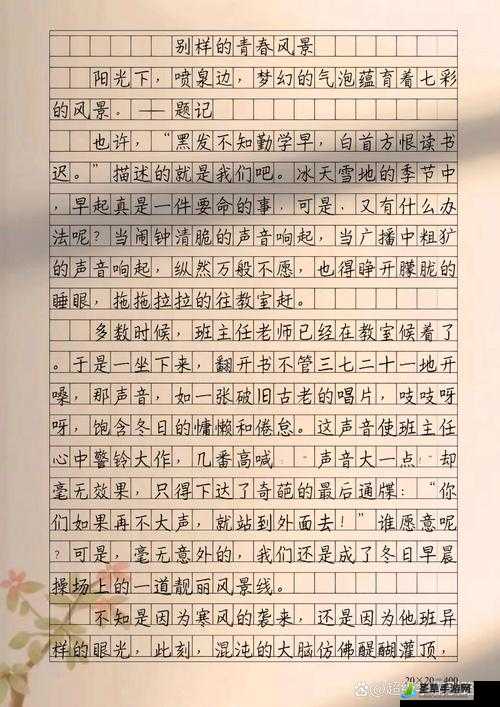 别样的青春风景
阳光下，喷泉边，梦幻的气泡蕴育着七彩
的风景。——题记
也许，“黑发不知勤学早，白首方恨读书
迟。”描述的就是我们吧。冰天雪地的季节中
，早起真是一件要命的事，可是，又有什么办
法呢？当闹钟清脆的声音响起，当广播中粗犷
的声音响起，纵然万般不愿，也得睁开朦胧的
睡眼，拖拖拉拉的往教室赶。
多数时候，班主任老师已经在教室候着了
。于是一坐下来，翻开书不管三七二十一地开
嗓，那声音，如一张破旧古老的唱片，吱吱呀
呀，饱含冬日的慵懒和倦怠。这声音使班主任
心中警铃大作，几番高喊 声音大一点 却
毫无效果，只得下达了奇葩的最后通牒：“你
们如果再不大声，就站到外面去！”谁愿意呢
？可是，毫无意外的，我们还是成了冬日早晨
操场上的一道靓丽风景线。
不知是因为寒风的袭来，还是因为他班异
样的眼光，此刻，混沌的大脑仿佛醍醐灌顶，
20×20=400